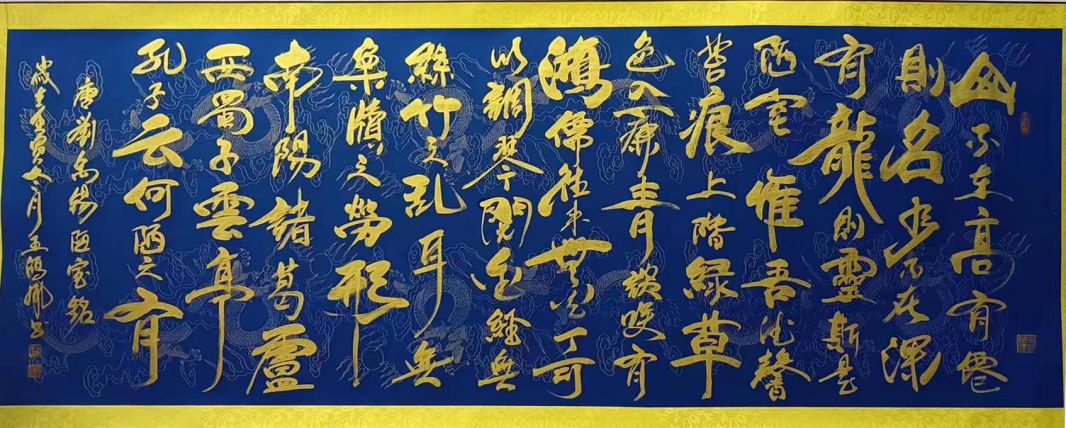 山不在高有僊
則名水不在深
有龍則靈斯是
陋室惟吾德馨
苔痕上階緑草
色入簾青談笑有
鴻儒往來無白丁可
以調琴閱金經無
絲竹之亂耳無
案牘之勞形
南陽諸葛廬
西蜀子雲亭
孔子云何陋之有
唐劉禹錫陋室銘
歲壬寅月王书